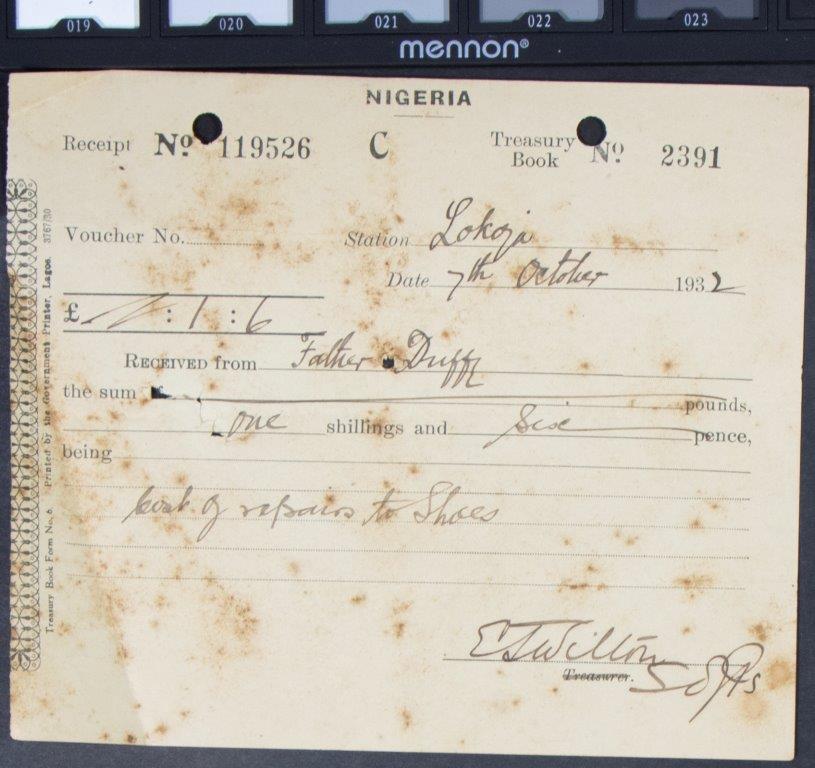 019 020 021 022 023
mennon®
NIGERIA
Receipt No. 119526 C Treasury Book No. 2391
Voucher No. Station Lokoja
Date 7th October 1932
£ - : 1 : 6
RECEIVED from Father Duffy
the sum of pounds,
one shillings and six pence,
being
cost of repairs to Shoes
E J Wilton
Treasurer.
Treasury Book Form No. 6. Printed by the Government Printer, Lagos. 3767/30